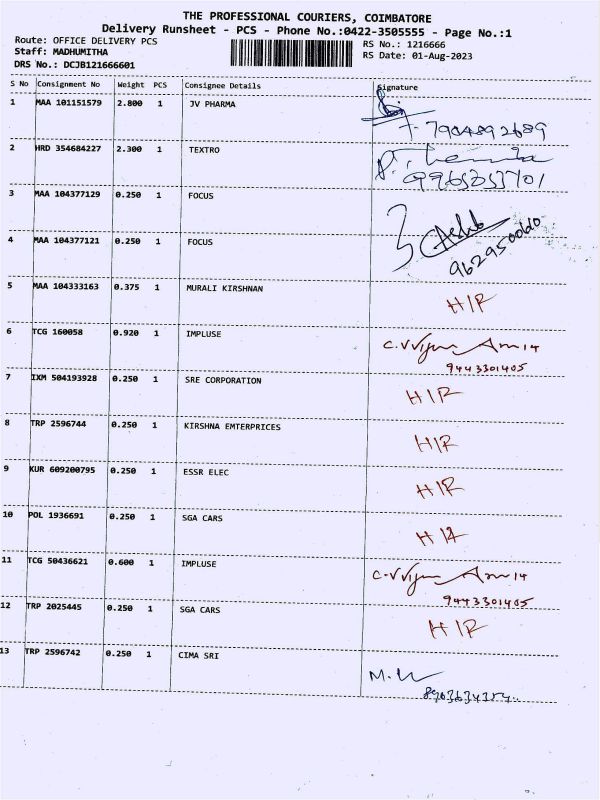 THE PROFESSIONAL COURIERS, COIMBATORE
Delivery Runsheet - PCS - Phone No.:0422-3505555 - Page No.:1
Route: OFFICE DELIVERY PCS RS No.: 1216666
Staff: MADHUMITHA RS Date: 01-Aug-2023
DRS No.: DCJB121666601
S No Consignment No Weight PCS Consignee Details Signature
1 MAA 101151579 2.800 1 JV PHARMA
7904892689
2 HRD 354684227 2.300 1 TEXTRO
9965253701
3 MAA 104377129 0.250 1 FOCUS
4 MAA 104377121 0.250 1 FOCUS
5 MAA 104333163 0.375 1 MURALI KIRSHNAN H/R
6 TCG 160058 0.920 1 IMPLUSE
9443301405
7 IXM 504193928 0.250 1 SRE CORPORATION H/R
8 TRP 2596744 0.250 1 KIRSHNA EMTERPRICES H/R
9 KUR 609200795 0.250 1 ESSR ELEC H/R
10 POL 1936691 0.250 1 SGA CARS H/R
11 TCG 50436621 0.600 1 IMPLUSE
9443301405
12 TRP 2025445 0.250 1 SGA CARS H/R
13 TRP 2596742 0.250 1 CIMA SRI